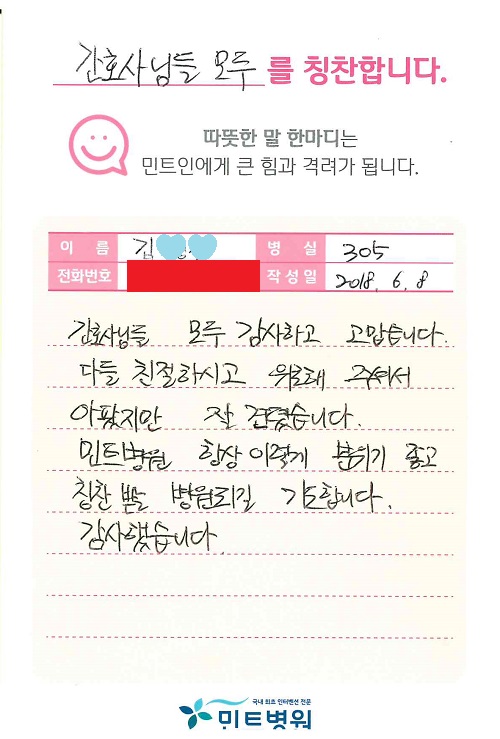 간호사님들 모두 를 칭찬합니다.
따뜻한 말 한마디는
민트인에게 큰 힘과 격려가 됩니다.
이 름 김 병 실 305
전화번호 작성일 2018. 6. 8
간호사님들 모두 감사하고 고맙습니다.
다들 친절하시고 위로해 주셔서
아팠지만 잘 견뎠습니다.
민트병원 항상 이렇게 분위기 좋고
칭찬 받을 병원되길 기도합니다.
감사했습니다
국내 최초 인터벤션 전문
민트병원